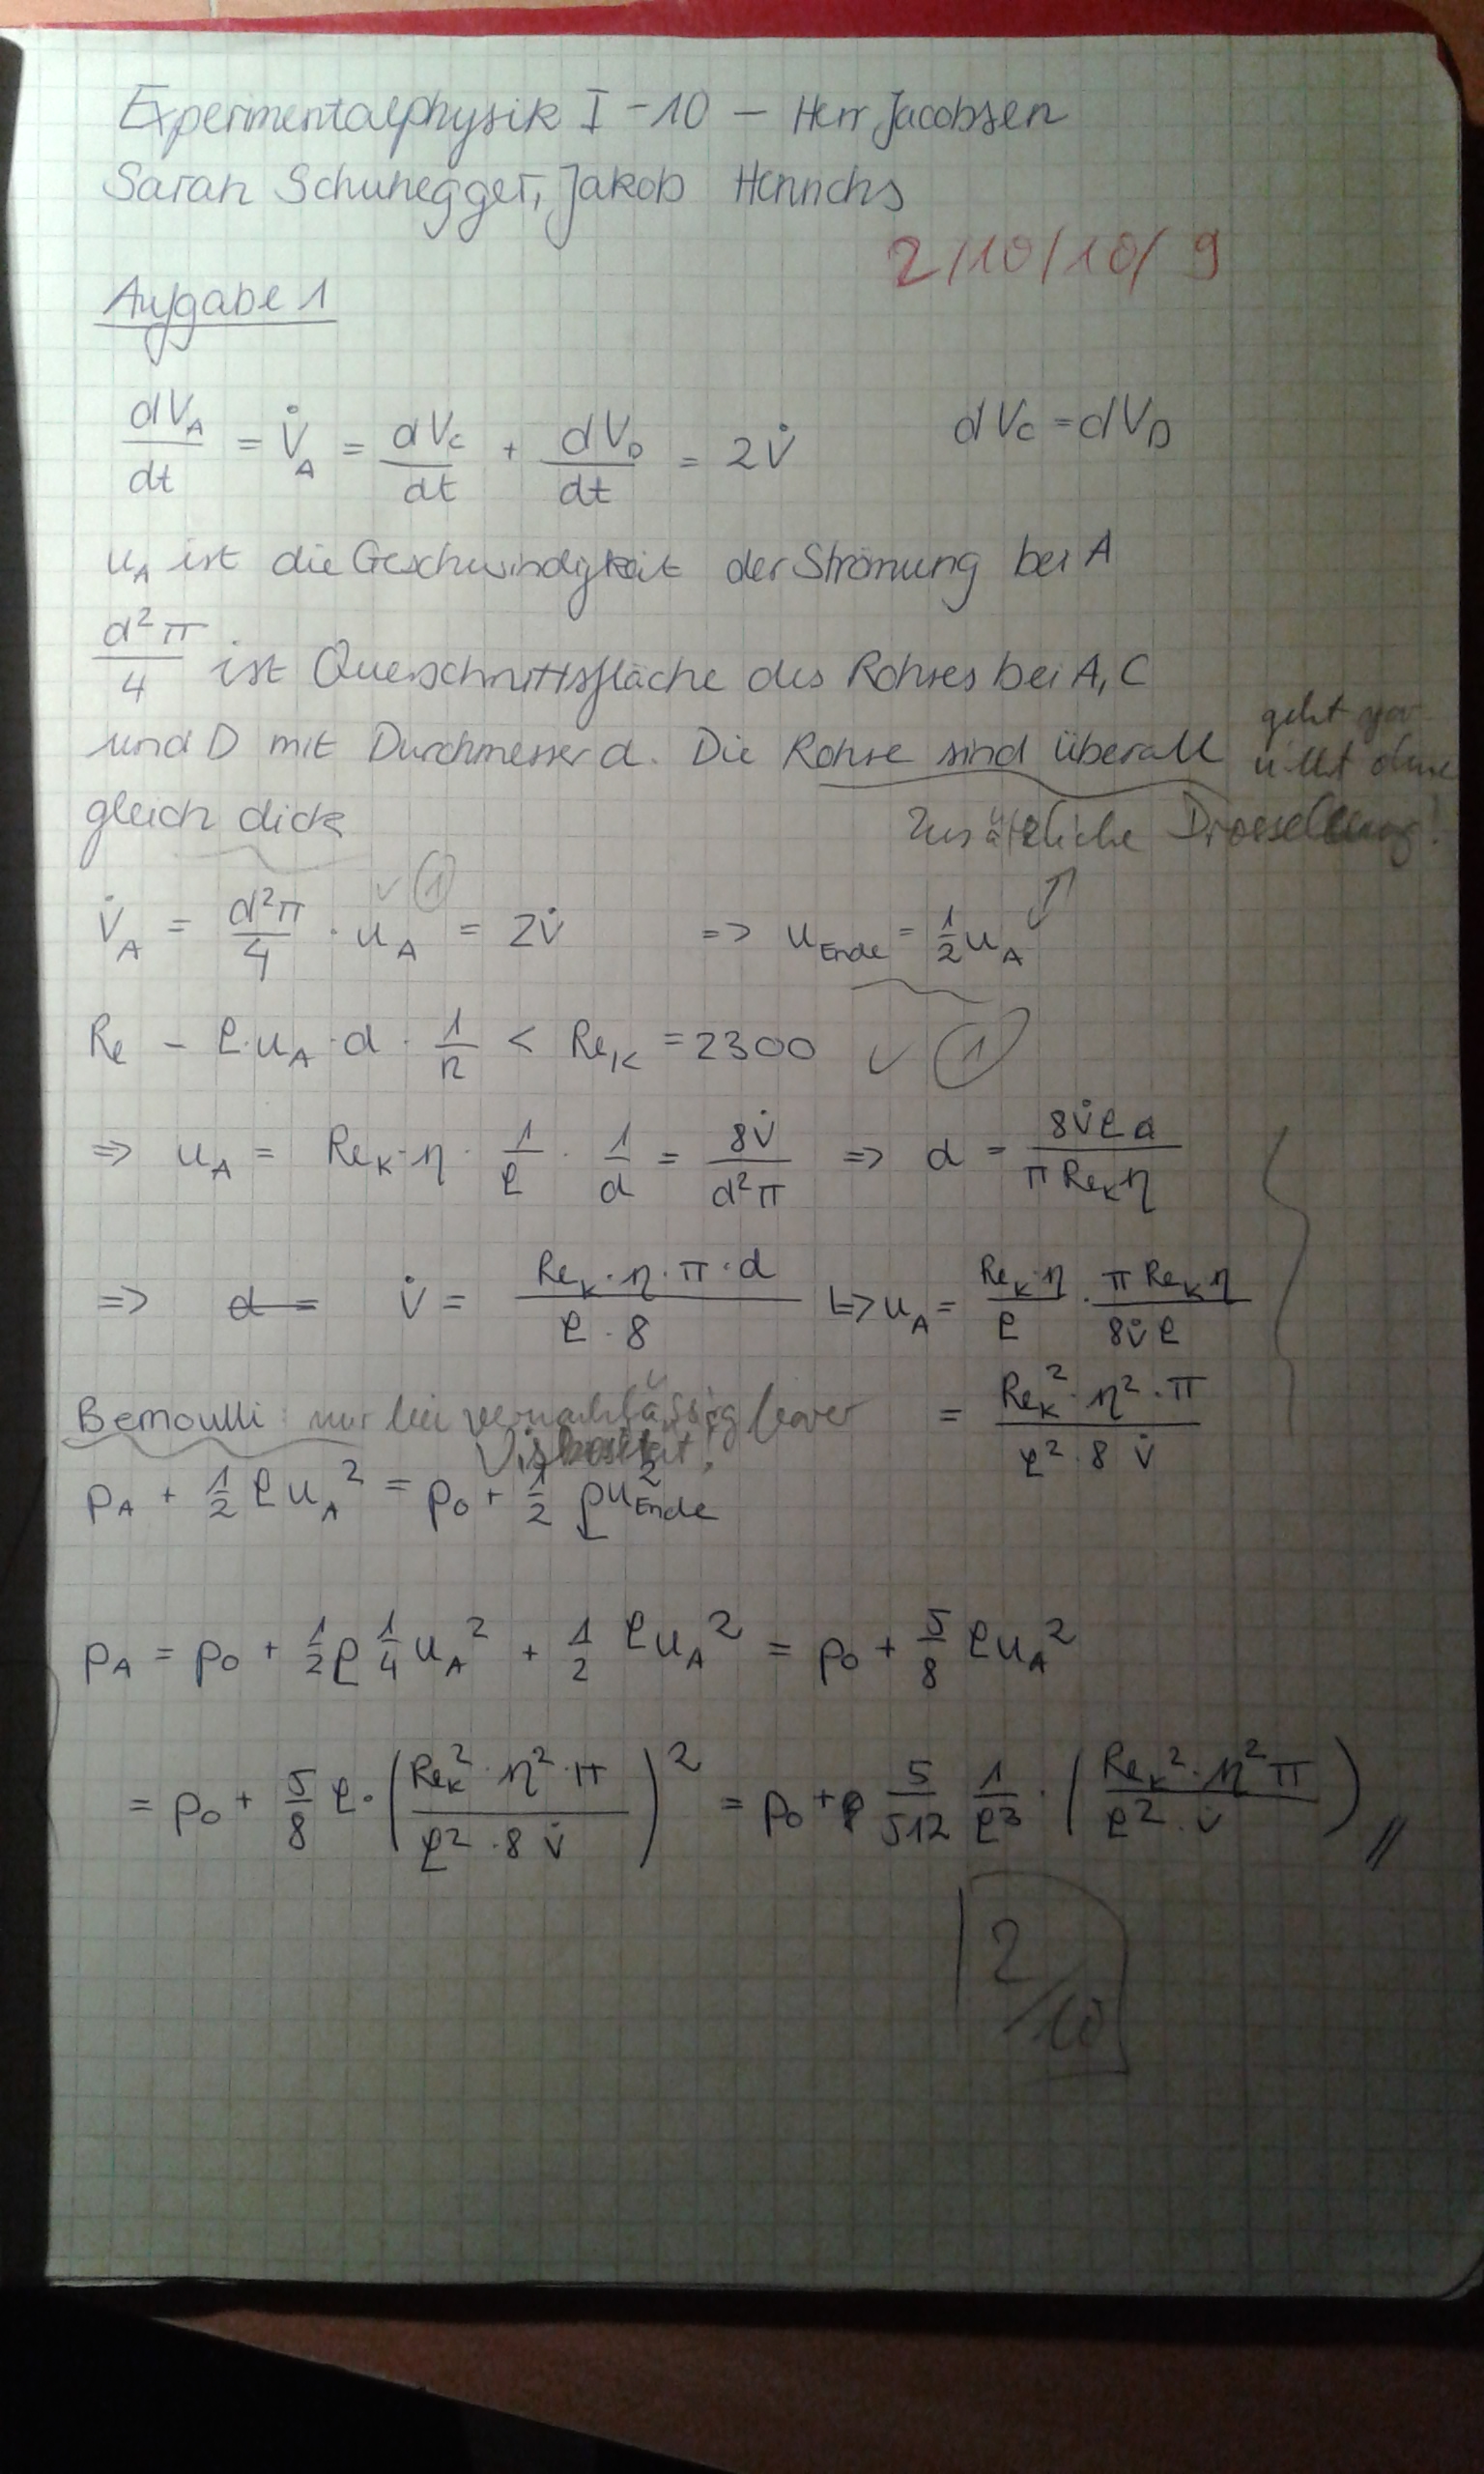 Experimentalphysik I - 10 — Herr Jacobsen
Sarah Schunegger, Jakob Henrichs
2/10/10/9
Aufgabe 1
dV_A/dt = V̇_A = dV_C/dt + dV_D/dt = 2V̇    dV_C = dV_D
u_A ist die Geschwindigkeit der Strömung bei A
d²π/4 ist Querschnittsfläche des Rohres bei A, C
und D mit Durchmesser d. Die Rohre sind überall
geht gar nicht ohne
gleich dick
zusätzliche Drosselung!
V̇_A = d²π/4 · u_A = 2V̇    => u_Ende = 1/2 u_A
✓ ①
Re = ρ·u_A·d · 1/η < Re_K = 2300 ✓ ①
=> u_A = Re_K·η · 1/ρ · 1/d = 8V̇/d²π => d = 8V̇ρd/πRe_Kη
=> d = V̇ = Re_K·η·π·d/ρ·8 ↳> u_A = Re_K·η/ρ · πRe_Kη/8V̇ρ
Bernoulli: nur bei vernachlässigbarer Viskosität!
= Re_K²·η²·π/ρ²·8 V̇
p_A + 1/2 ρu_A² = p_0 + 1/2 ρu²_Ende
p_A = p_0 + 1/2 ρ 1/4 u_A² + 1/2 ρu_A² = p_0 + 5/8 ρu_A²
= p_0 + 5/8 ρ·(Re_K²·η²·π/ρ²·8 V̇)² = p_0 + 5/512 1/ρ³·(Re_K²·η²π/ρ²·V̇)//
2/10